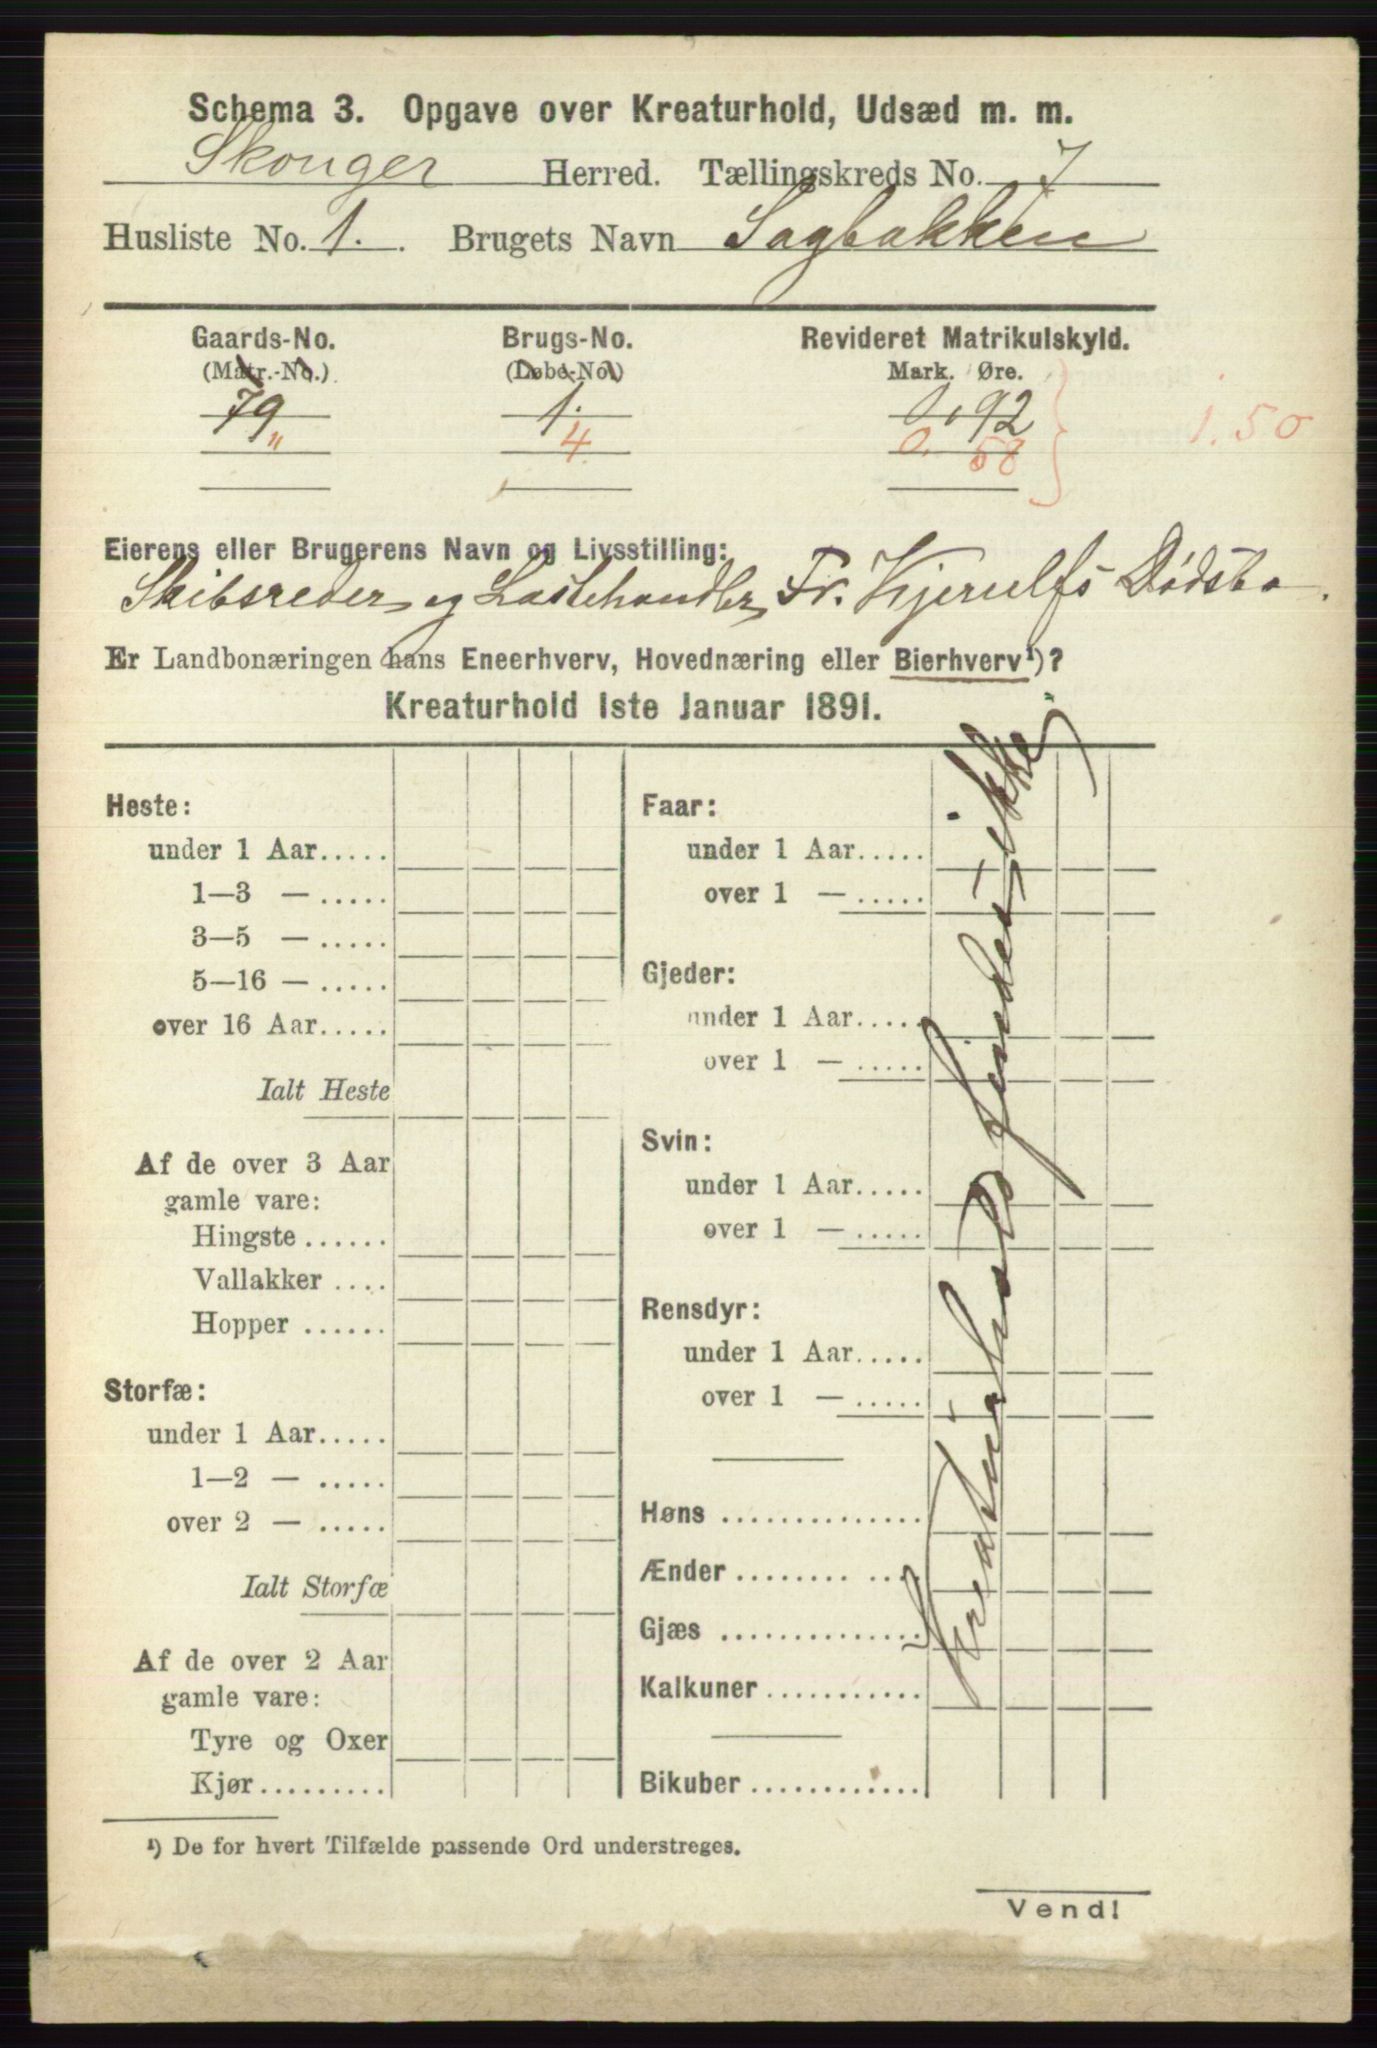 Schema 3. Opgave over Kreaturhold, Udsæd m. m.
Skouger Herred. Tællingskreds No. 7
Husliste No. 1. Brugets Navn Sagbakken
Gaards-No. Brugs-No. Revideret Matrikulskyld.
(Matr.-No.) (Løbe-No.) Mark. Øre.
79 1. 0,92
" 4 0. 58 } 1.50
Eierens eller Brugerens Navn og Livsstilling:
Skibsreder og Lastehandler Fr. Kjerulfs Dødsbo.
Er Landbonæringen hans Eneerhverv, Hovednæring eller Bierhverv¹)?
Kreaturhold 1ste Januar 1891.
Heste:
under 1 Aar.....
1—3 — .....
3—5 — .....
5—16 — .....
over 16 Aar.....
Ialt Heste
Af de over 3 Aar
gamle vare:
Hingste ......
Vallakker ....
Hopper ......
Storfæ:
under 1 Aar.....
1—2 — .....
over 2 — .....
Ialt Storfæ
Af de over 2 Aar
gamle vare:
Tyre og Oxer
Kjør.........
Faar:
under 1 Aar.....
over 1 — .....
Gjeder:
under 1 Aar.....
over 1 — .....
Svin:
under 1 Aar.....
over 1 — .....
Rensdyr:
under 1 Aar.....
over 1 — .....
Høns ..............
Ænder ........ ....
Gjæs ..............
Kalkuner ...........
Bikuber ............
Kreaturhold findes ikke
¹) De for hvert Tilfælde passende Ord understreges.
Vend!